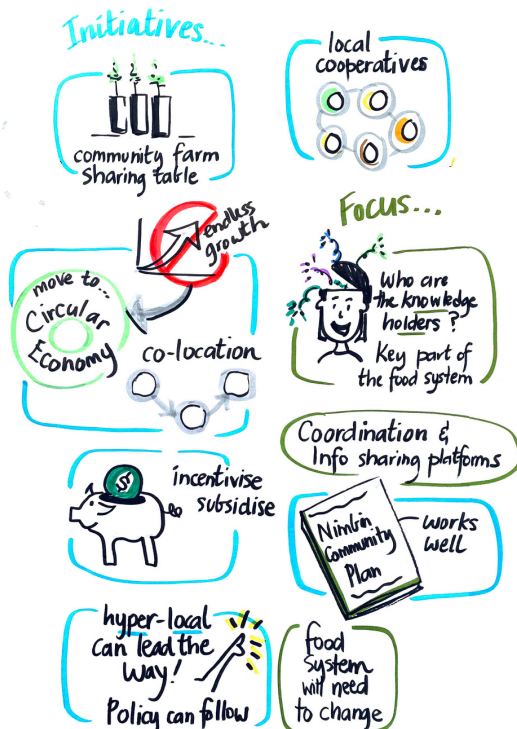 Initiatives...
community farm
Sharing table
local
cooperatives
endless
growth
move to...
Circular
Economy
co-location
Focus...
Who are
the knowledge
holders?
Key part of
the food system
Coordination &
Info sharing platforms
$
incentivise
subsidise
Nimbin
Community
Plan
works
well
hyper-local
can lead the
way!
Policy can follow
food
System
will need
to change